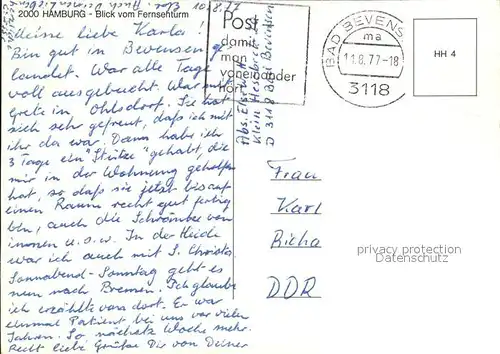 2000 HAMBURG - Blick vom Fernsehturm
10.8.77
Meine liebe Karla!
Bin gut in Bevensen ge
landet. War alle Tage
voll ausgebucht. War mit
Grete in Ohlsdorf. Sie hat
sich sehr gefreut, daß ich mit
ihr da war. Dann habe ich
3 Tage ein "Stütze" gehabt, die
mir in der Wohnung geholfen
hat, so daß sie jetzt bis auf
einen Raum recht gut fertig
bin, auch die Schränke von
innen u.s.w. In der Heide
war ich auch mit S. Christa
Sonnabend-Sonntag geht es
nun nach Bremen. Ich glaube
ich erzählte von dort. Er war
einmal Patient bei uns vor vielen
Jahren. So nächste Woche mehr.
Recht liebe Grüße Dir von Deiner
Post
damit
man
voneinander
hört
BAD BEVENSEN
ma
11.8.77-18
3118
HH 4
Abs.
Klein
D 3118 Bad Bevensen
Frau
Karl
Richa
DDR
privacy protection
Datenschutz